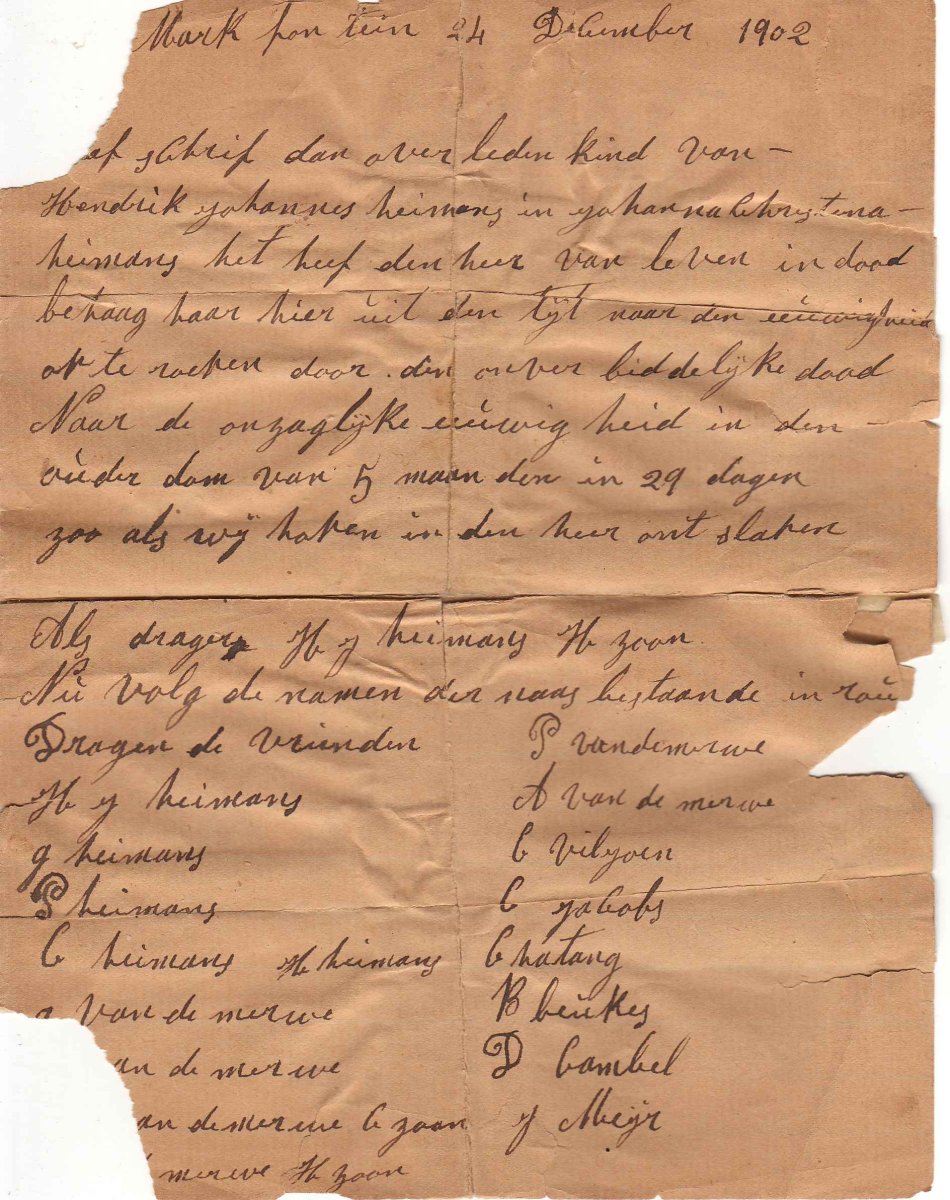 Mark fon tein 24 December 1902
ef schrif dan over leden kind van -
Hendrik johannes heimans in johanna Christina -
heimans het heef den heer van leven in dood
behaag haar hier uit den tijt naar den eeuwigheid
op te roepen door den onver biddelijke dood
Naar de onzaglijke eeuwig heid in den -
ouder dom van 5 maan den in 29 dagen
zoo als wij hopen in den heer ont slapen
Als drager H j heimans H zoon
Nu volg de namen der naas bestaande in rou
Dragen de vrienden
H j heimans
g heimans
P heimans
C heimans H heimans
van de merwe
an de merwe
an de merwe C zoon
merwe H zoon
P van de merwe
A van de merwe
C viljoen
C jacobs
C hatang
B beukes
D Cambel
j Meijr